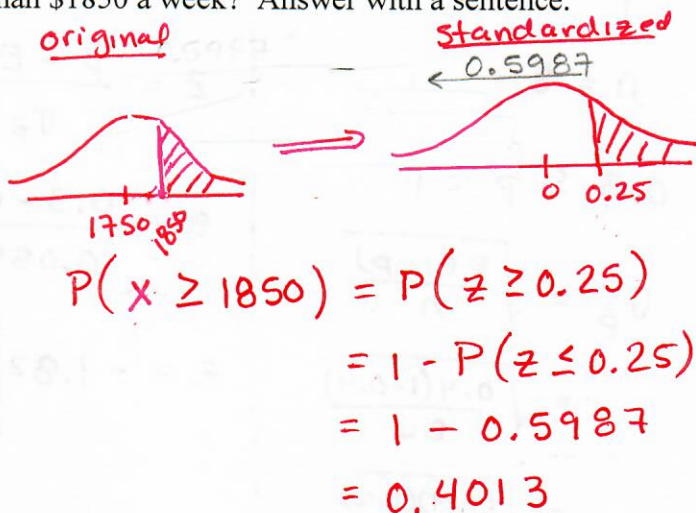 than $1850 a week? Answer with a sentence.
original
standardized
0.5987
1750 1850
0 0.25
P(x ≥ 1850) = P(z ≥ 0.25)
= 1 - P(z ≤ 0.25)
= 1 - 0.5987
= 0.4013